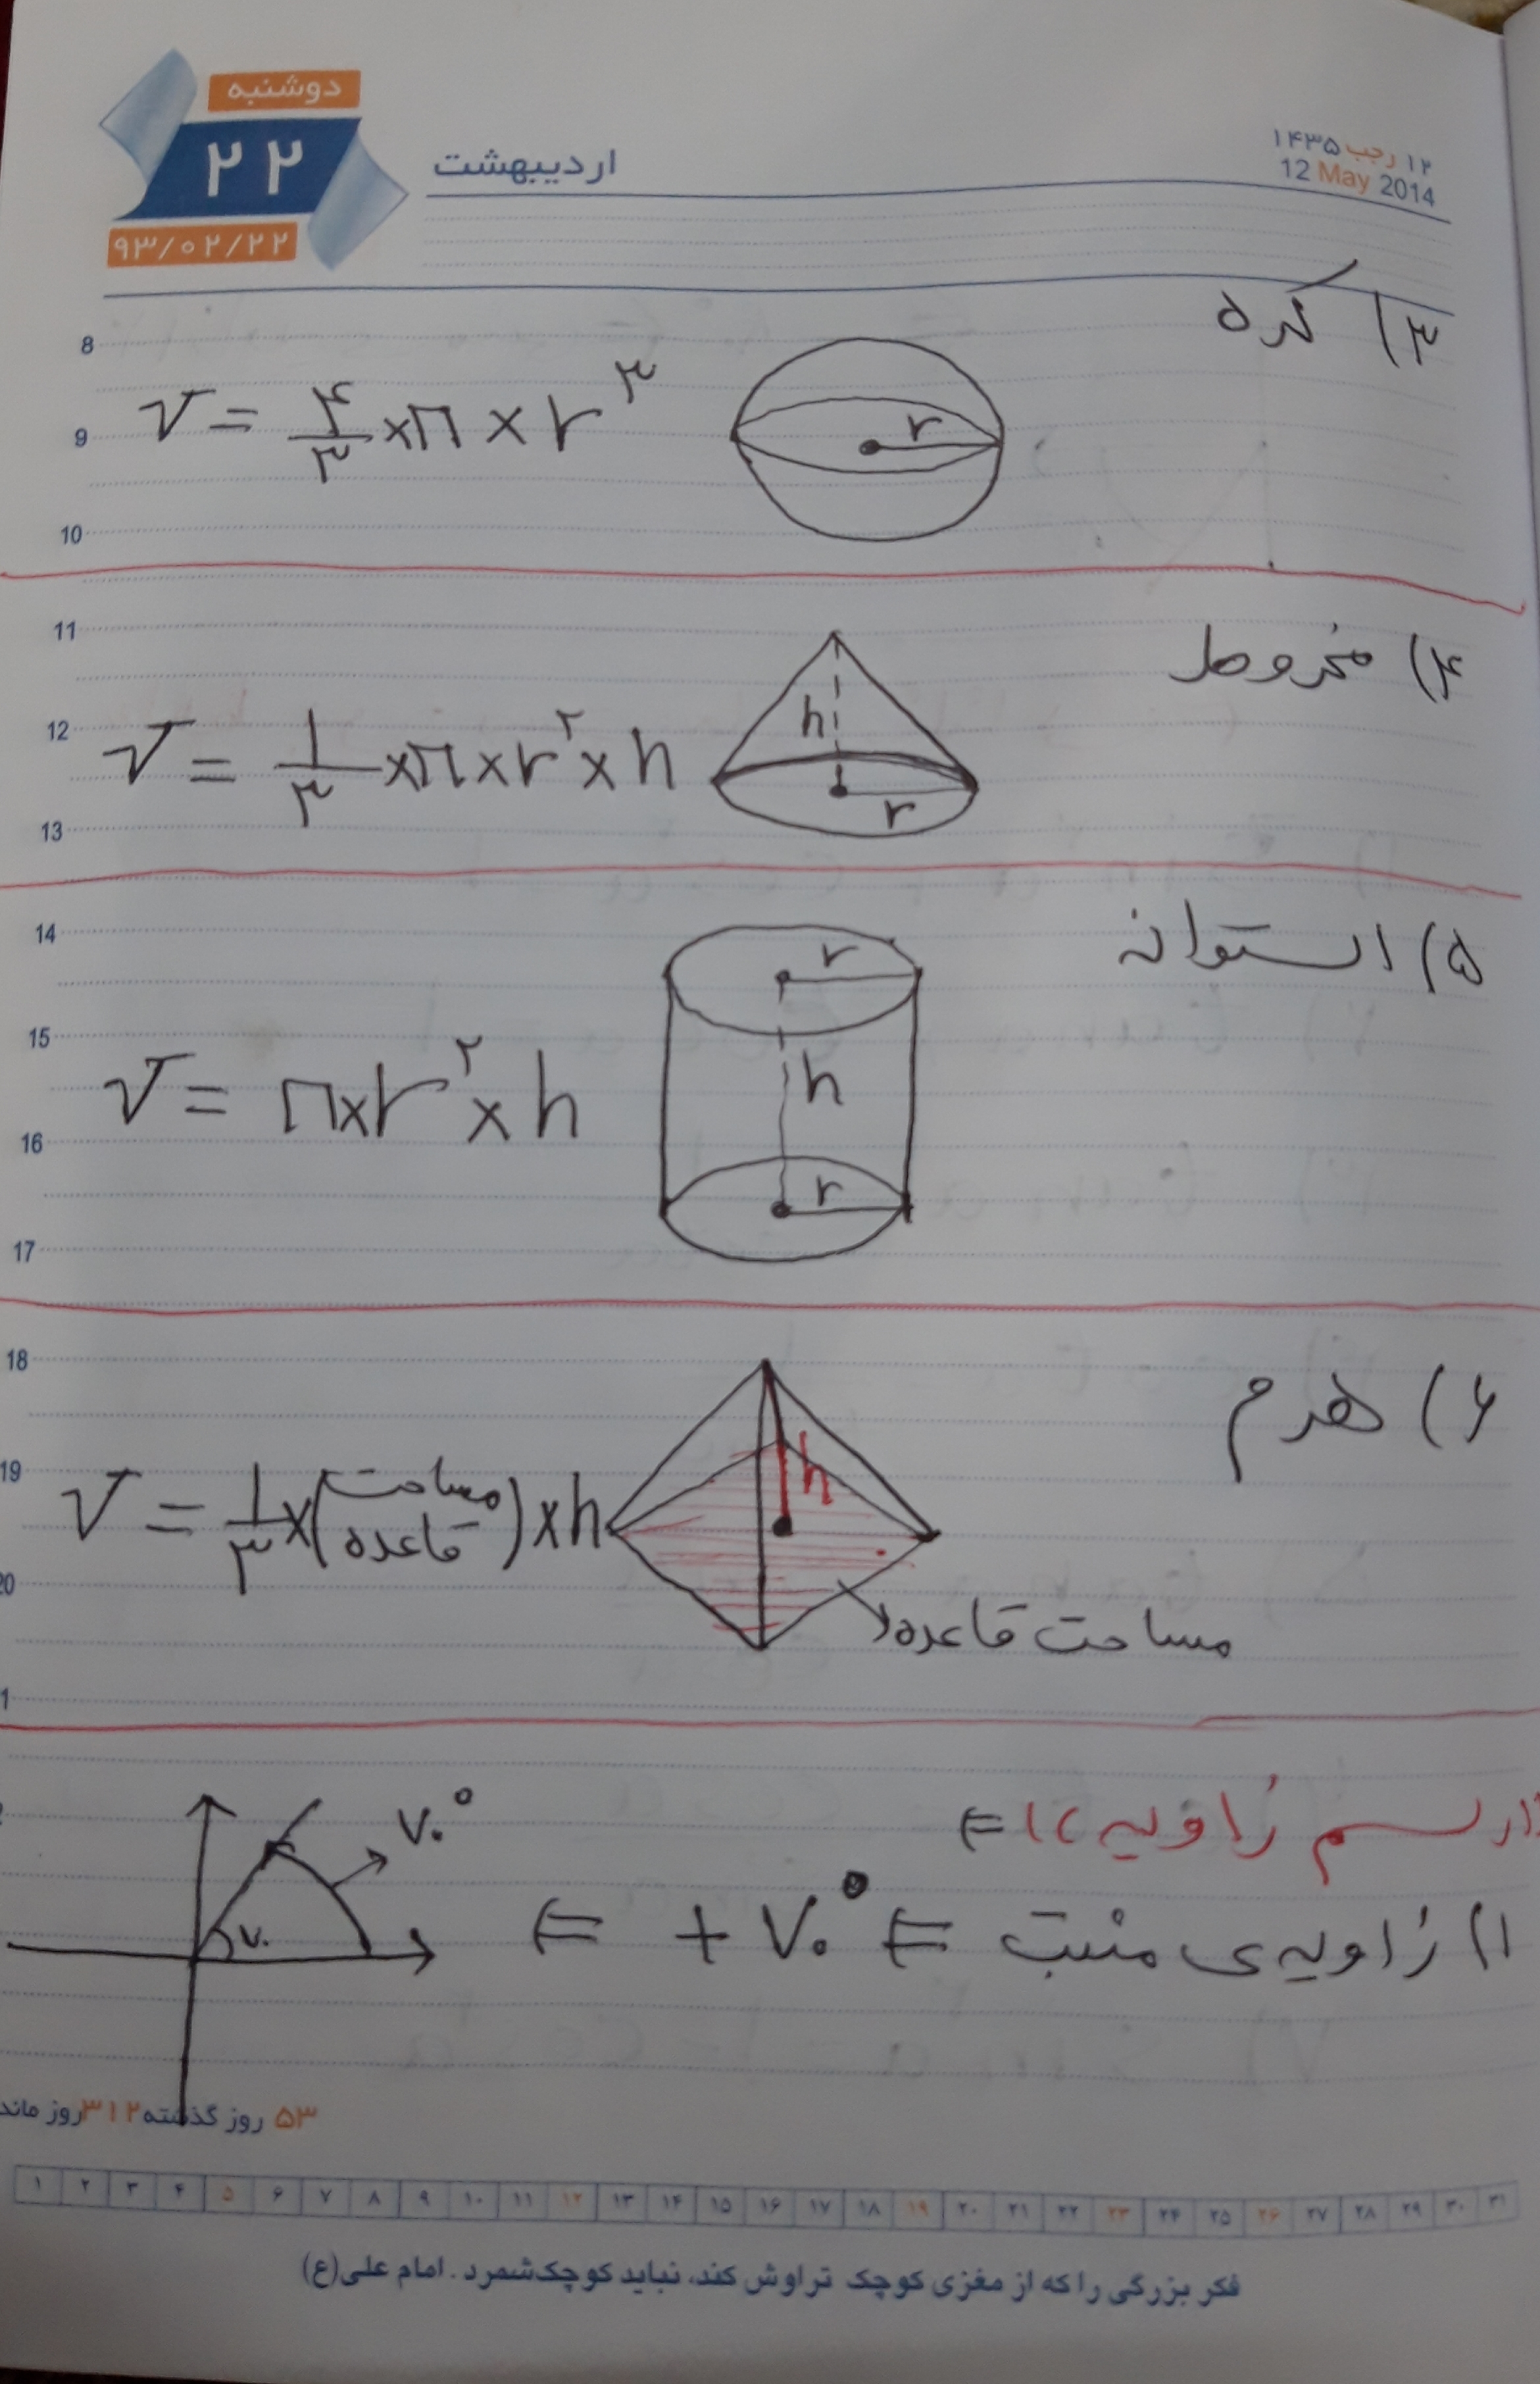 دوشنبه
۲۲
۹۳/۰۲/۲۲
اردیبهشت
۱۲ رجب ۱۴۳۵
12 May 2014
۳) کره
8
9
10
V = ۴/۳ × π × r^۳
r
11
12
13
۴) مخروط
V = ۱/۳ × π × r^۲ × h
h
r
14
15
16
17
۵) استوانه
V = π × r^۲ × h
r
h
r
18
19
20
۶) هرم
V = ۱/۳ × (مساحت قاعده) × h
h
مساحت قاعده
رسم زاویه ⇐
۱) زاویه‌ی مثبت ⇐ +۷۰° ⇐
۷۰°
۷۰
۵۳ روز گذشته ۳۱۲ روز ماند
۱ ۲ ۳ ۴ ۵ ۶ ۷ ۸ ۹ ۱۰ ۱۱ ۱۲ ۱۳ ۱۴ ۱۵ ۱۶ ۱۷ ۱۸ ۱۹ ۲۰ ۲۱ ۲۲ ۲۳ ۲۴ ۲۵ ۲۶ ۲۷ ۲۸ ۲۹ ۳۰ ۳۱
فکر بزرگی را که از مغزی کوچک تراوش کند، نباید کوچک شمرد. امام علی(ع)